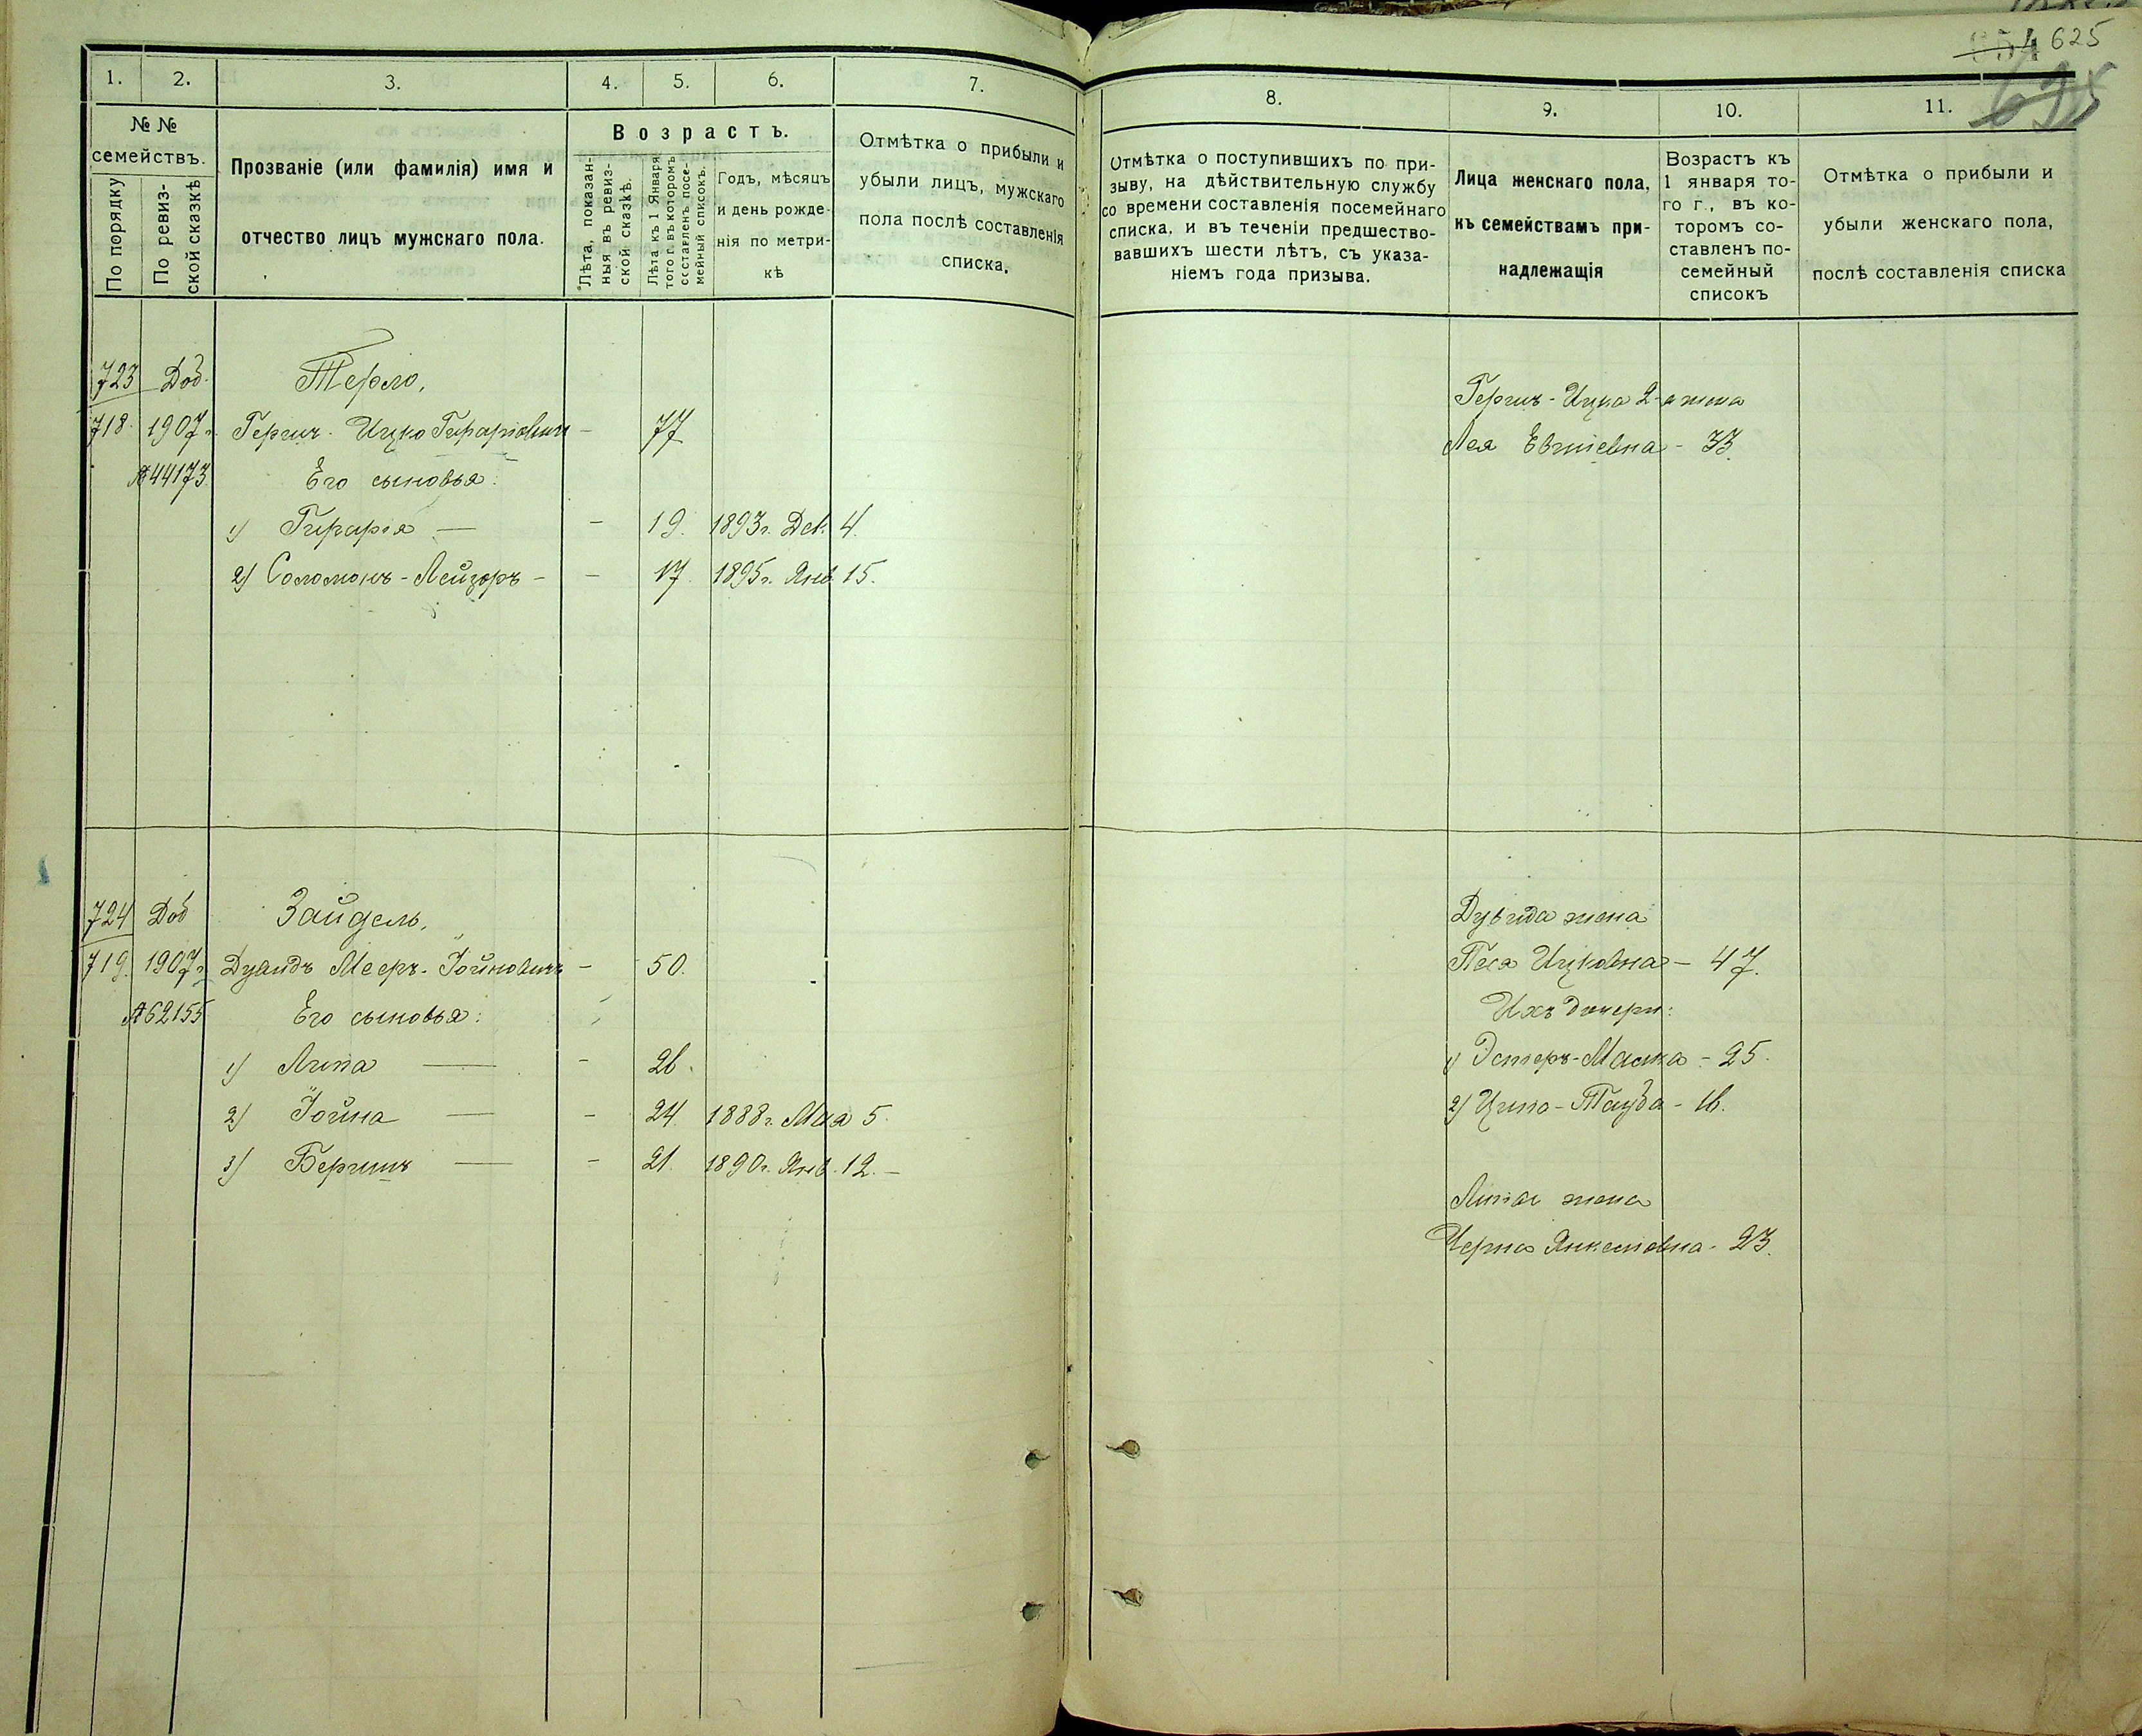 625
1.
2.
3.
4.
5.
6.
7.
№ №
семействъ.
По порядку
По ревиз-
ской сказкѣ
Прозваніе (или фамилія) имя и
отчество лицъ мужскаго пола.
Возрастъ.
Лѣта, показан-
ныя въ ревиз-
ской сказкѣ.
Лѣта къ 1 Января
того г. въ которомъ
составленъ посе-
мейный списокъ.
Годъ, мѣсяцъ
и день рожде-
нія по метри-
кѣ
Отмѣтка о прибыли и
убыли лицъ, мужскаго
пола послѣ составленія
списка.
723 Доб. Терло,
718. 1907г. Гершъ-Ицко - 77
№44173. Его сыновья:
1) — - 19. 1893г. Дек. 4.
2) Соломонъ-Лейзоръ - - 17. 1895г. Янв. 15.
724 Доб Зайдель,
719. 1907г. Дувидъ Мееръ-Іойновичъ - 50.
№62155 Его сыновья:
1) Липа — - 26.
2) Іойна — - 24. 1888г. Мая 5.
3) Бершъ — - 21. 1890г. Янв. 12.-
8.
9.
10.
11.
Отмѣтка о поступившихъ по при-
зыву, на дѣйствительную службу
со времени составленія посемейнаго
списка, и въ теченіи предшество-
вавшихъ шести лѣтъ, съ указа-
ніемъ года призыва.
Лица женскаго пола,
къ семействамъ при-
надлежащія
Возрастъ къ
1 января то-
го г., въ ко-
торомъ со-
ставленъ по-
семейный
списокъ
Отмѣтка о прибыли и
убыли женскаго пола,
послѣ составленія списка
Гершъ-Ицка 2-я жена
Лея - 33.
Дувида жена
Песя Ицковна - 47.
Ихъ дочери:
1) Эстеръ-Малка - 25.
2) Ципа-Тауба - 16.
Липы жена
Черна Янкелевна - 23.